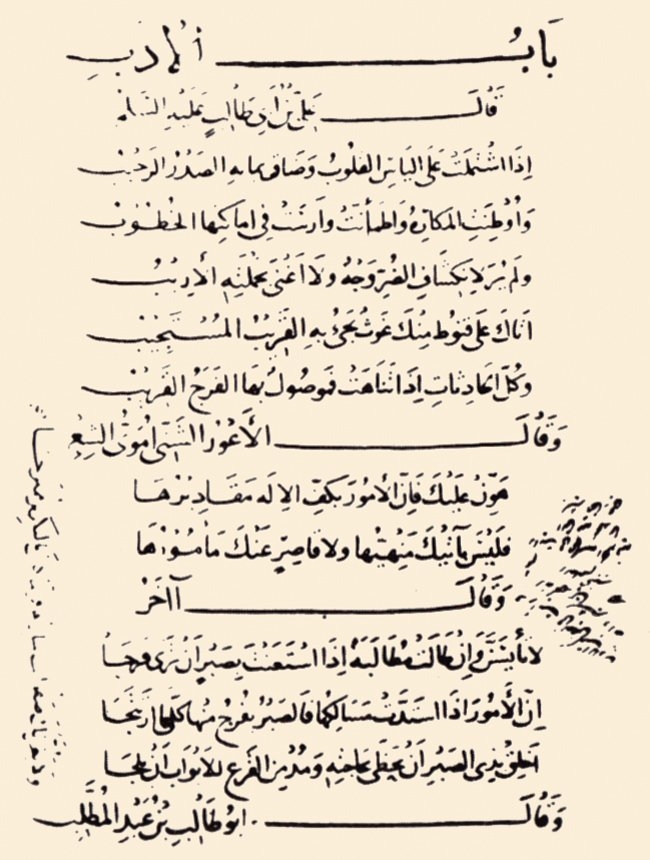 بَابُ الأدب
قَالَ عَلِيّ بْنُ أَبي طَالِبٍ عَلَيْهِ السَّلَمْ
إِذَا اشْتَمَلَتْ عَلَى اليَاسِ القلُوبُ وَضَاقَ بمابهِ الصَدْرُ الرَحيْبُ
وَأَوْطَنَتِ المَكارِهُ وَاطمَأنَّتْ وَارسَتْ فِي امَاكِنِهَا الخُطُوْبُ
ولَمْ يُرَ لانكِشَافِ الضُرِّ وَجْهٌ ولَا اَغْنَى بحيْلَتِهِ الأرِيْبُ
اَتَاكَ عَلَى قنُوطٍ مِنْكَ غَوثٌ يَجيُ بهِ القَرِيْبُ المُسْتَجِيْبُ
وَكُلّ الحَادِثَاتِ اِذَا تَنَاهَتْ فمَوصُولٌ بهَا الفَرَجُ القَرِيْبُ
وَقَالَ الأَعْوَرُ الشَنّي
هَوّنْ عَلَيْكَ فَاِنّ الأمُورَ بكَفِّ الإلَه مَقَادِيْرُهَا
فلَيْسَ بآتيْكَ مَنْهِيّهَا ولا قاصِرٍ عَنْكَ مَامُوْرُهَا
وَقَالَ آاخَرْ
لا تأيسَنَّ وَاِنْ طَالتْ مُطَالَبَةٌ اِذَا اسْتَعَنْتَ بِصَبْرٍ اَنْ تَرَى فَرَجَا
اِنّ الأُمُورَ اِذَا اسْتَدَّتْ مَسَالِكُهَا فَالصَبْرُ يَفرجُ مِنْهَا كلّمَا ارْتَتَجَا
اَخلِقْ بذِي الصَبْرِ اَنْ يَحْظَى بحَاجتهِ وَمُدْمِنِ القَرْعِ للاَبْوَابِ اَنْ يَلِجَا
وَقَالَ ابُو طَالِبِ بْنُ عَبْدِ المُطَّلِب